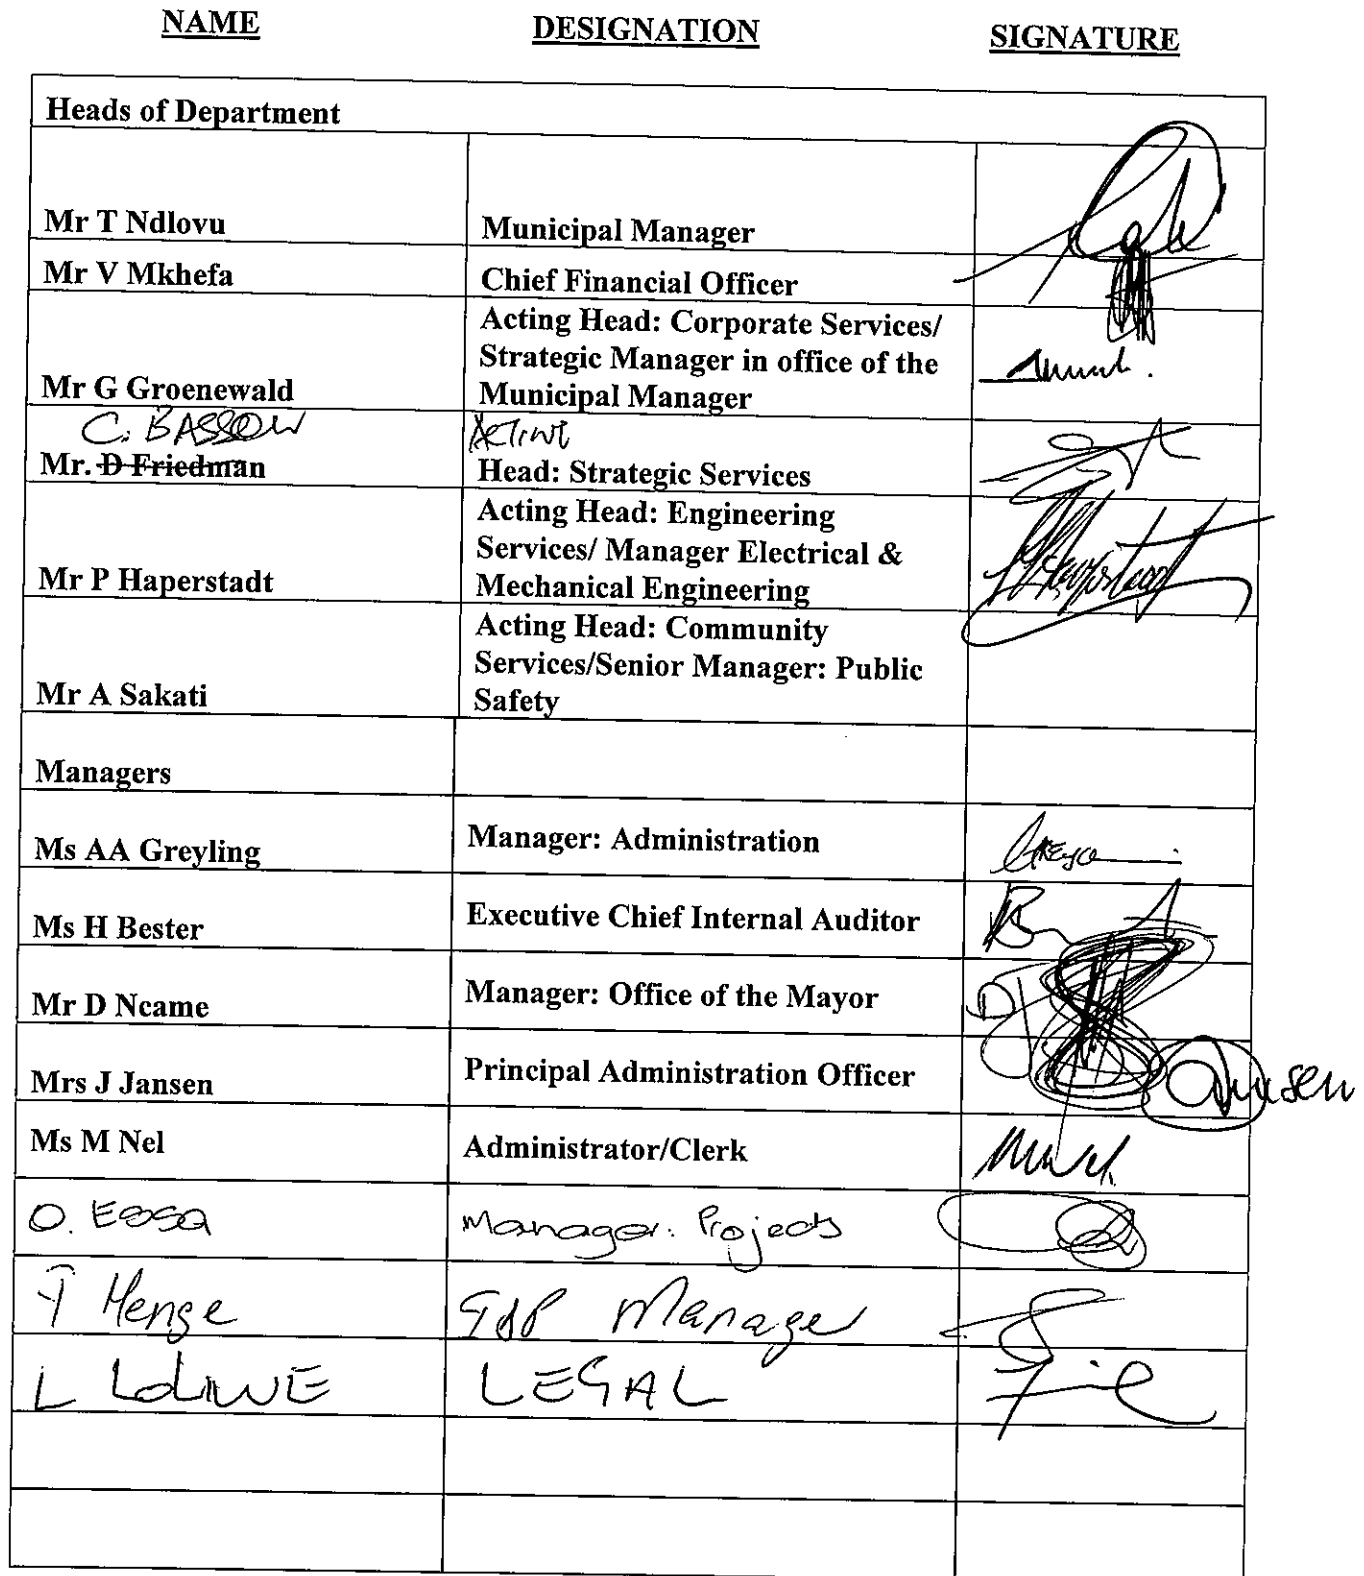 NAME DESIGNATION SIGNATURE
Heads of Department
Mr T Ndlovu Municipal Manager
Mr V Mkhefa Chief Financial Officer
Acting Head: Corporate Services/
Strategic Manager in office of the
Mr G Groenewald Municipal Manager
C. BASSON
Mr. D Friedman Head: Strategic Services
Acting Head: Engineering
Services/ Manager Electrical &
Mr P Haperstadt Mechanical Engineering
Acting Head: Community
Services/Senior Manager: Public
Mr A Sakati Safety
Managers
Ms AA Greyling Manager: Administration
Ms H Bester Executive Chief Internal Auditor
Mr D Ncame Manager: Office of the Mayor
Mrs J Jansen Principal Administration Officer
Ms M Nel Administrator/Clerk
O. Essa Manager: Projects
T Henge Manager
L LOLIWE LEGAL